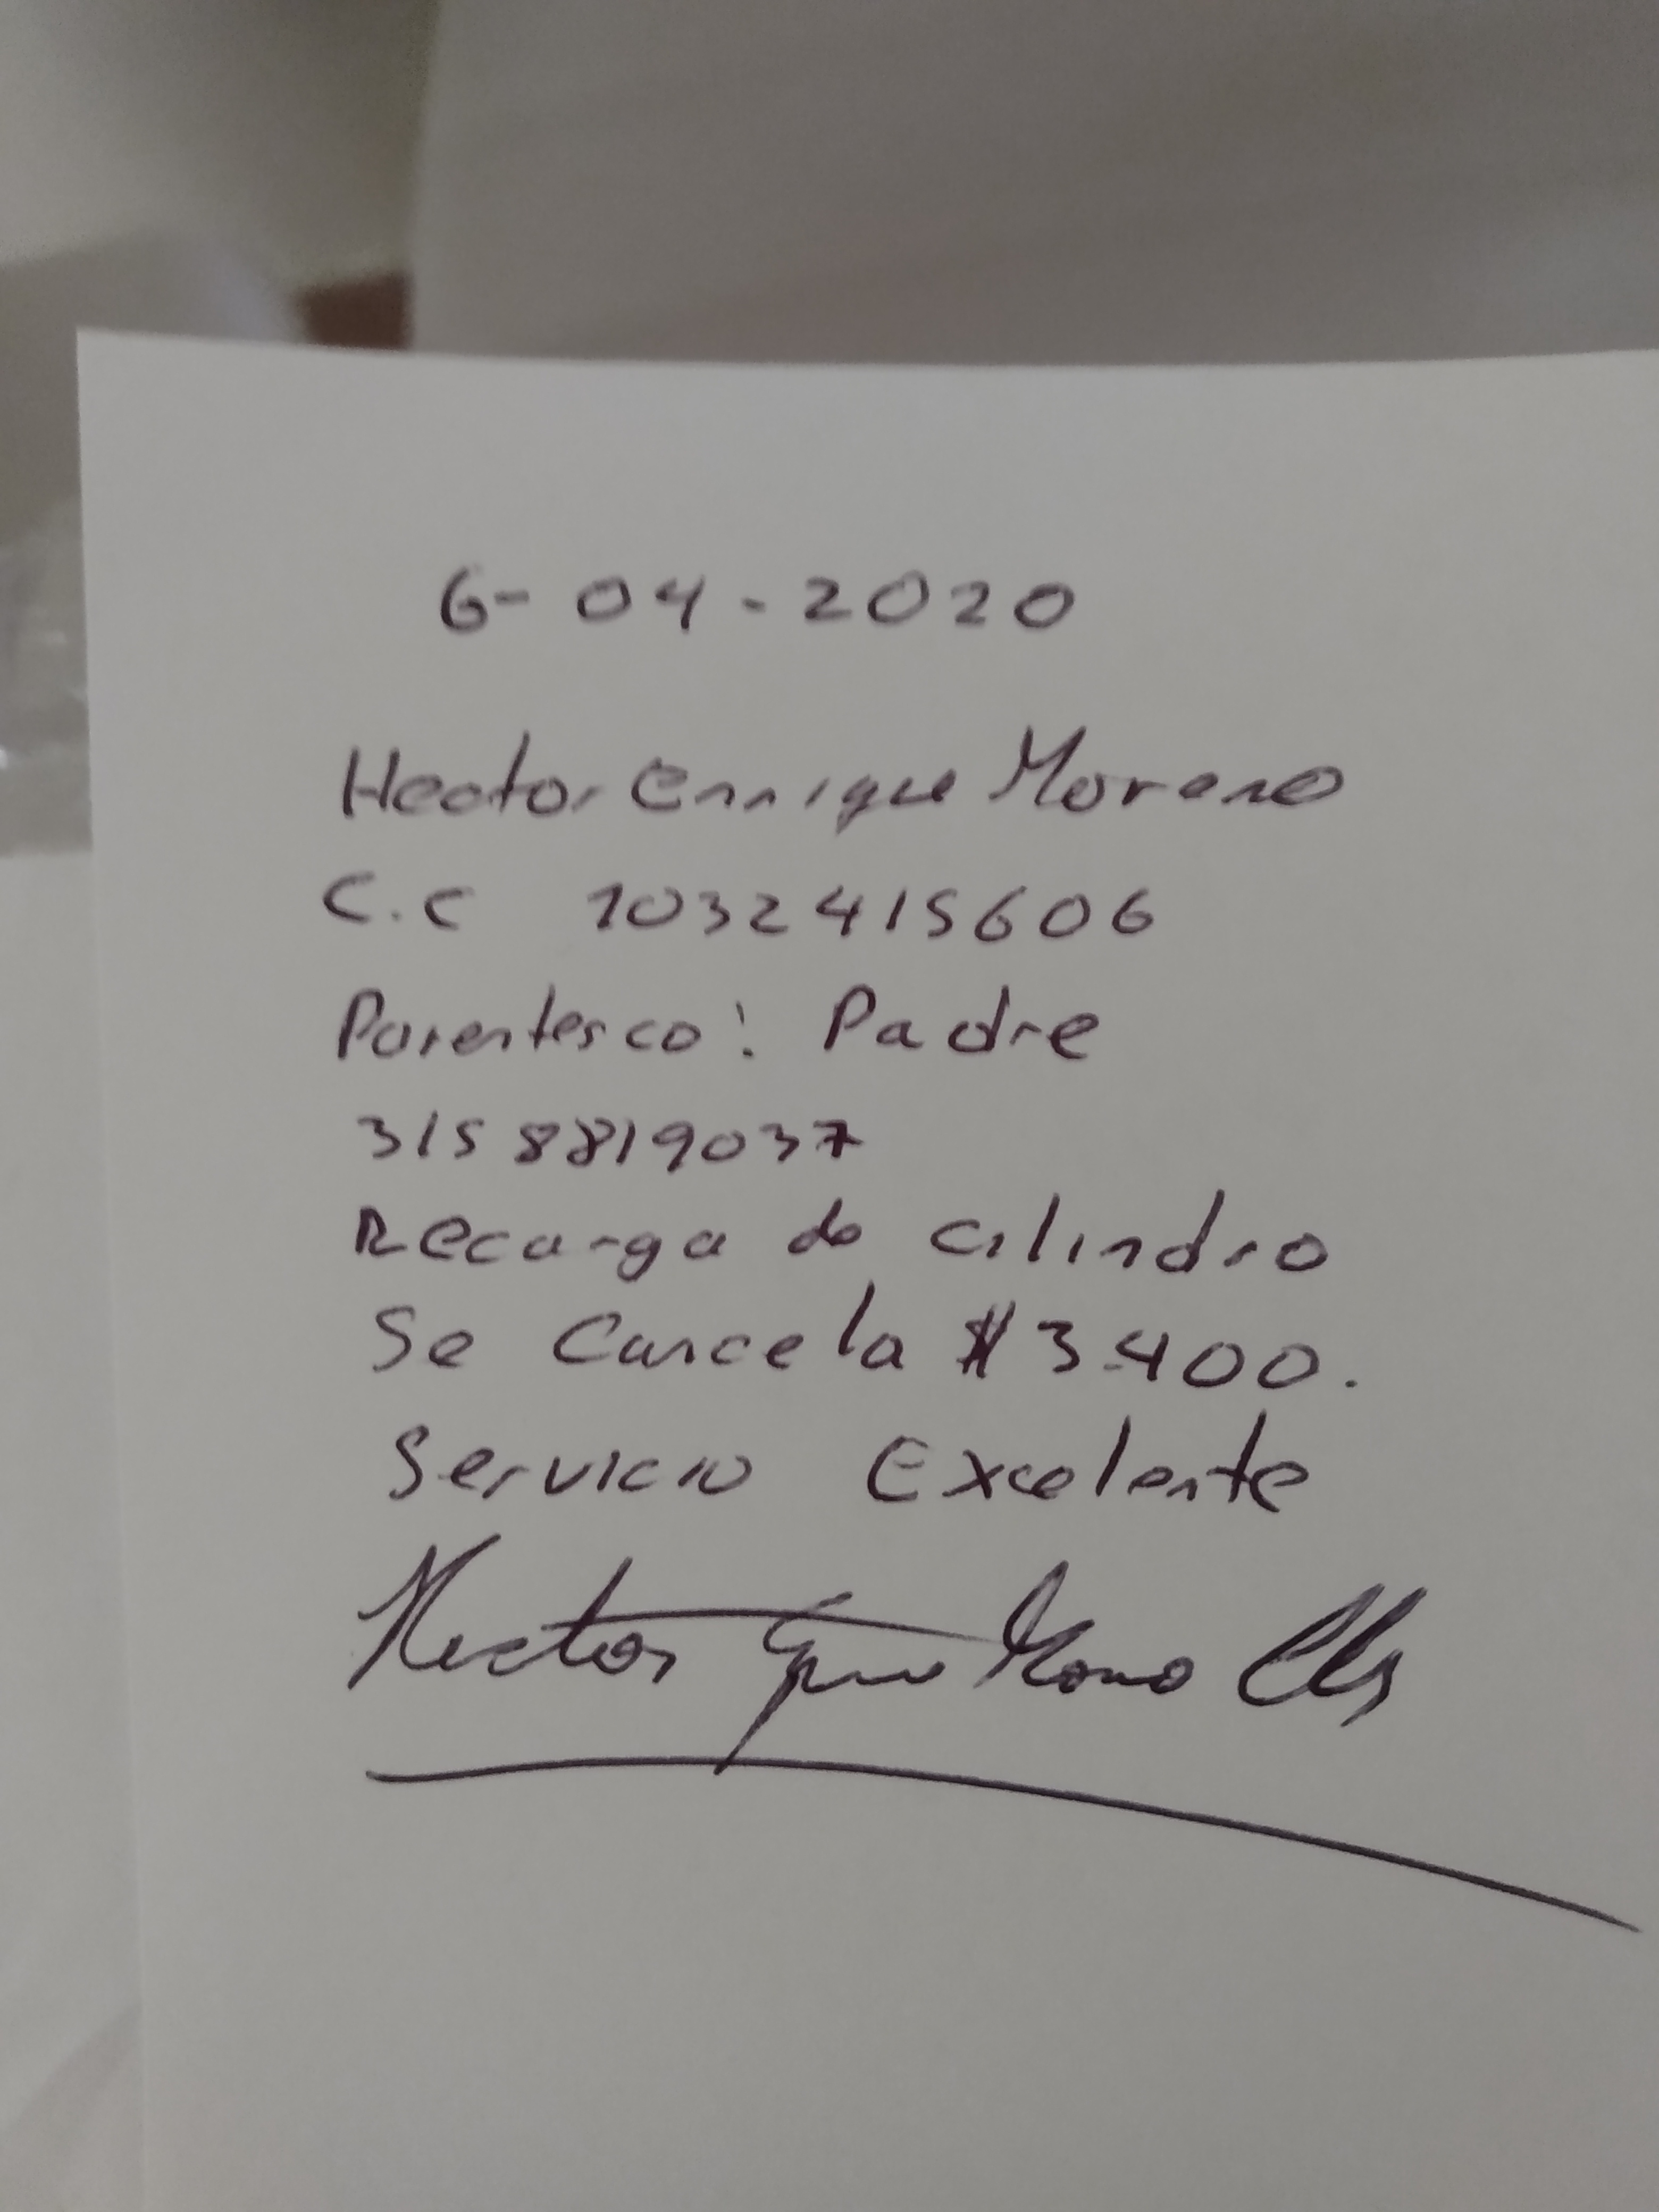 6-04-2020
Hector Enrrique Moreno
C.C 1032415606
Parentesco: Padre
3158819037
Recarga de cilindro
Se Cancela $3.400.
Servicio Excelente
Hector